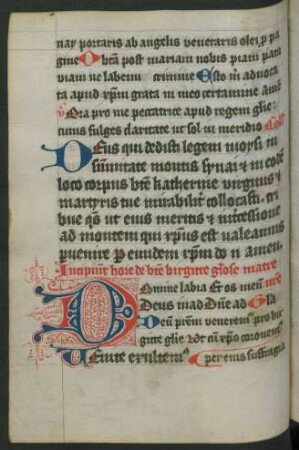 nay portaris ab angelis veneraris olei p pa
gine O btā post mariam nobis piam para
viam ne labemur crimine Esto m̄ advoca
ta apud xp̄m grata in meo certamine amē
v̄ Ora pro me peccatrice apud regem glie
cuius fulges claritate ut sol in meridio Coll
Deus qui dedisti legem moysi in
sūmitate montis synai et in eodē
loco corpus btē katherine virginis et
martyris tue mirabilit collocasti tri
bue qs̄ ut eius meritis et intcessione
ad montem qui xp̄us est valeamus
puenire P eundem xp̄m do n amen
Incipiūt hore de btē virgine gliose matre
Domine labia Et os meū
Deus in ad Dn̄e ad Gla
Deū prēm venerem pro vir
gine glie
Venite exultem perennis suffragia